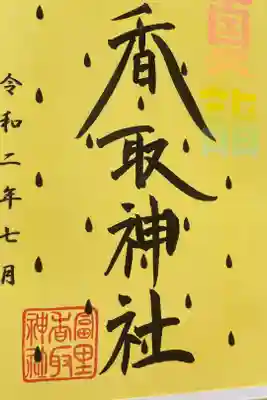 香取神社
令和二年七月
富里
香取
神社